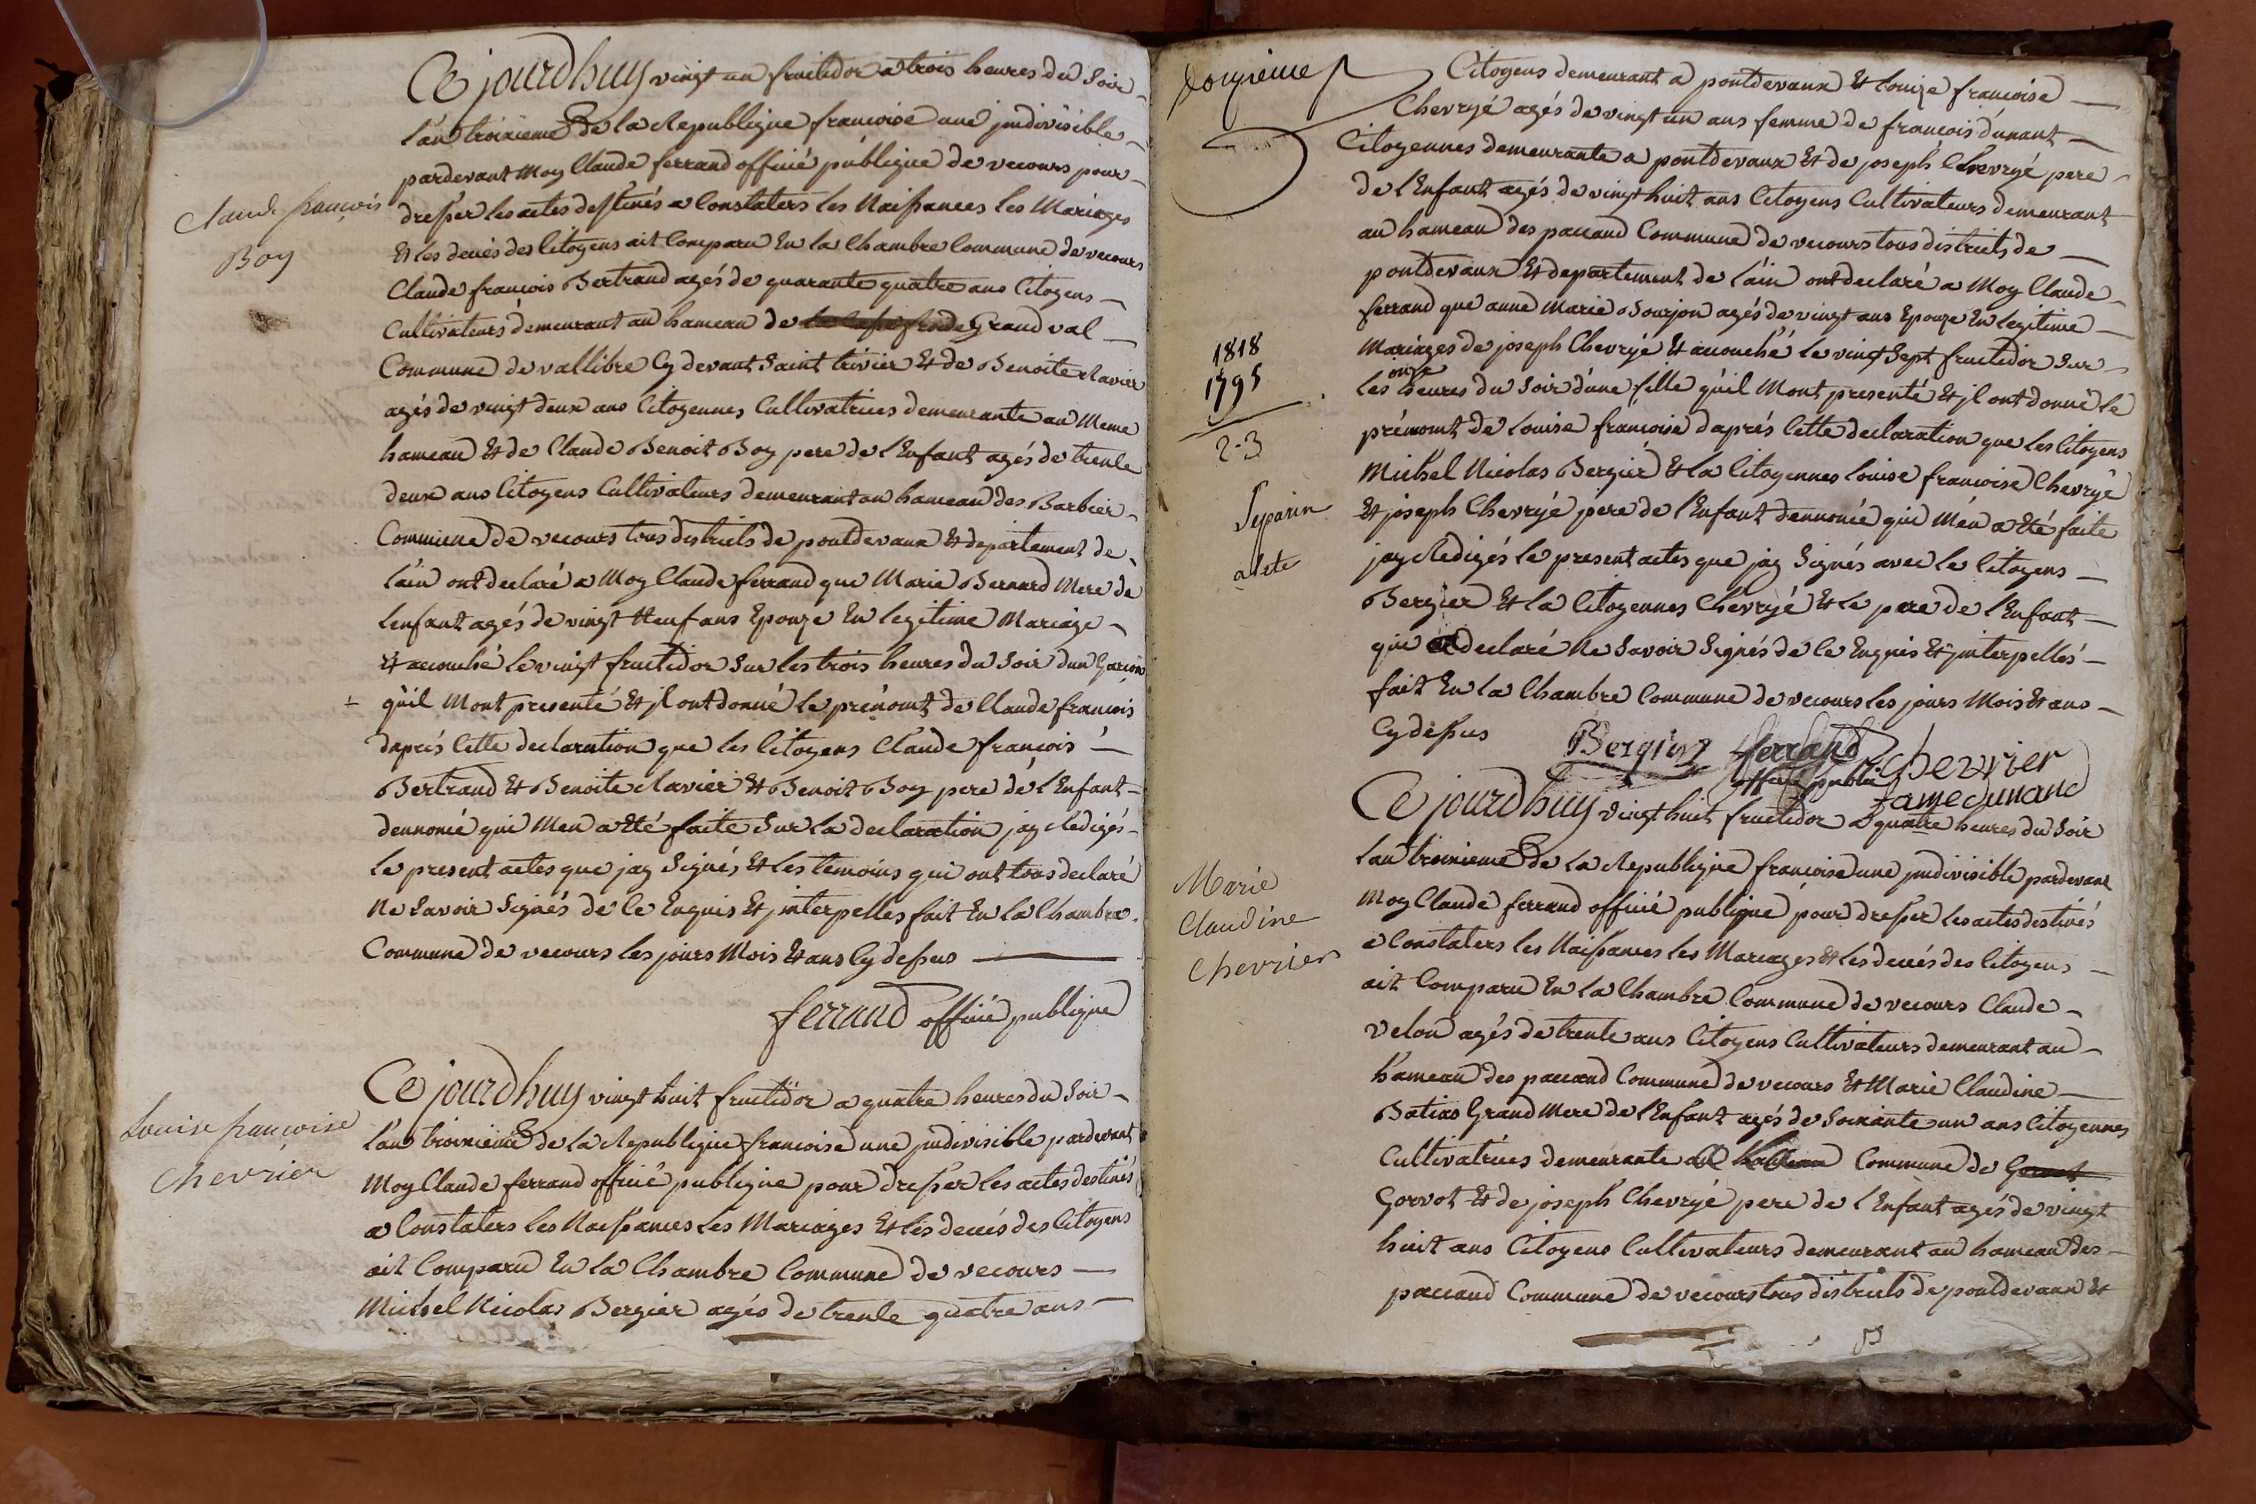 Ce jourdhuy vingt un fructidor a trois heures du Soir
l'an troisieme de la Republique francoise une jndivisible
pardevant Moy Claude ferrand officié publique de vecours pour
dresser les actes destinés a Constaters les Naissances les Mariages
Et les decués des Citoyens ait Comparu En la Chambre Commune de vecours
Claude francois Bertrand agés de quarante quatre ans Citoyens
Cultivateurs demeurant au hameau de Grand val
Commune de vallibre Cy devant Saint trivier Et de Benoite Ravier
agés de vingt deux ans Citoyennes Cultivatrices demeurante au Meme
hameau Et de Claude Benoit Boy pere de l'Enfant agés de trente
deux ans Citoyens Cultivateurs demeurant au hameau des Barbier
Commune de vecours tous districts de pontdevaux Et departement de
l'ain ont declaré a Moy Claude ferrand que Marie Bernard Mere de
lenfant agés de vingt Neuf ans Epouze En legitime Mariage
Et acouché le vingt fructidor Sur les trois heures du Soir dun Garcon
quil Mont presenté Et jl ont donné le prénomt de Claude francois
daprés Cette declaration que les Citoyens Claude francois
Bertrand Et Benoite Ravier Et Benoit Boy pere de l'Enfant
dennoncé qui Men a Eté faite Sur la declaration jay Redigés
le present actes que jay Signés Et les temoins qui ont tous declaré
Ne Savoir Signés de Ce Enquis Et jnterpelles fait En la Chambre
Commune de vecours les jours Mois Et ans Cy dessus
ferrand officié publique
Claude francois
Boy
Ce jourdhuy vingt huit fructidor a quatre heures du Soir
l'an troisieme de la Republique francoise une jndivisible pardevant
Moy Claude ferrand officié publique pour dresser les actes destinés
a Constaters les Naissances les Mariages Et les decués des Citoyens
ait Comparu En la Chambre Commune de vecours
Michel Nicolas Bergier agés de trente quatre ans
Louise francoise
Chevrier
Citoyens demeurant a pontdevaux Et Louize francoise
Chevryé agés de vingt un ans femme de francois dunant
Citoyennes demeurante a pontdevaux Et de joseph Chevryé pere
de l'Enfant agés de vingt huit ans Citoyens Cultivateurs demeurant
au hameau des paccaud Commune de vecours tous districts de
pontdevaux Et departement de l'ain ont declaré a Moy Claude
ferrand que anne Marie Bourjon agés de vingt ans Epouze En legitime
Mariages de joseph Chevryé Et acouché le vingt Sept fructidor Sur
onze
les heures du Soir d'une fille quil Mont presenté Et jl ont donné le
prénomt de Louise francoise daprés Cette declaration que les Citoyens
Michel Nicolas Bergier Et la Citoyennes Louise francoise Chevryé
Et joseph Chevryé pere de l'Enfant dennoncé qui Men a Eté faite
jay Redigés le present actes que jay Signés avec le Citoyens
Bergier Et la Citoyennes Chevryé Et le pere de l'Enfant
qui a declaré Ne Savoir Signés de Ce Enquis Et jnterpellés
fait En la Chambre Commune de vecours les jours Mois Et ans
Cy dessus
Bergier ferrand Chevrier
officié public
fame dunand
1818
1795
2-3
Marie
Claudine
Chevrier
Ce jourdhuy vingt huit fructidor a quatre heures du Soir
l'an troisieme de la Republique francoise une jndivisible pardevant
Moy Claude ferrand officié publique pour dresser les actes destinés
a Constaters les Naissances les Mariages Et les decués des Citoyens
ait Comparu En la Chambre Commune de vecours Claude
Velon agés de trente ans Citoyens Cultivateurs demeurant au
hameau des paccaud Commune de vecours Et Marie Claudine
Batias Grand Mere de l'Enfant agés de Soixante un ans Citoyennes
Cultivatrices demeurante Commune de
Gorvot Et de joseph Chevryé pere de l'Enfant agés de vingt
huit ans Citoyens Cultivateurs demeurant au hameau des
paccaud Commune de vecours tous districts de pontdevaux Et